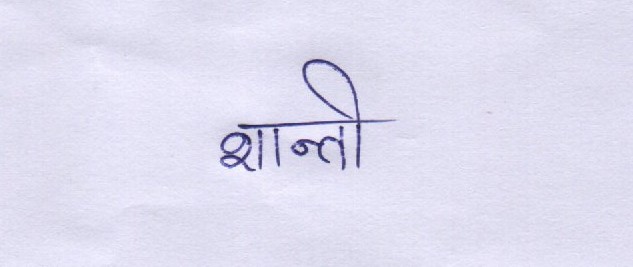 शान्ती